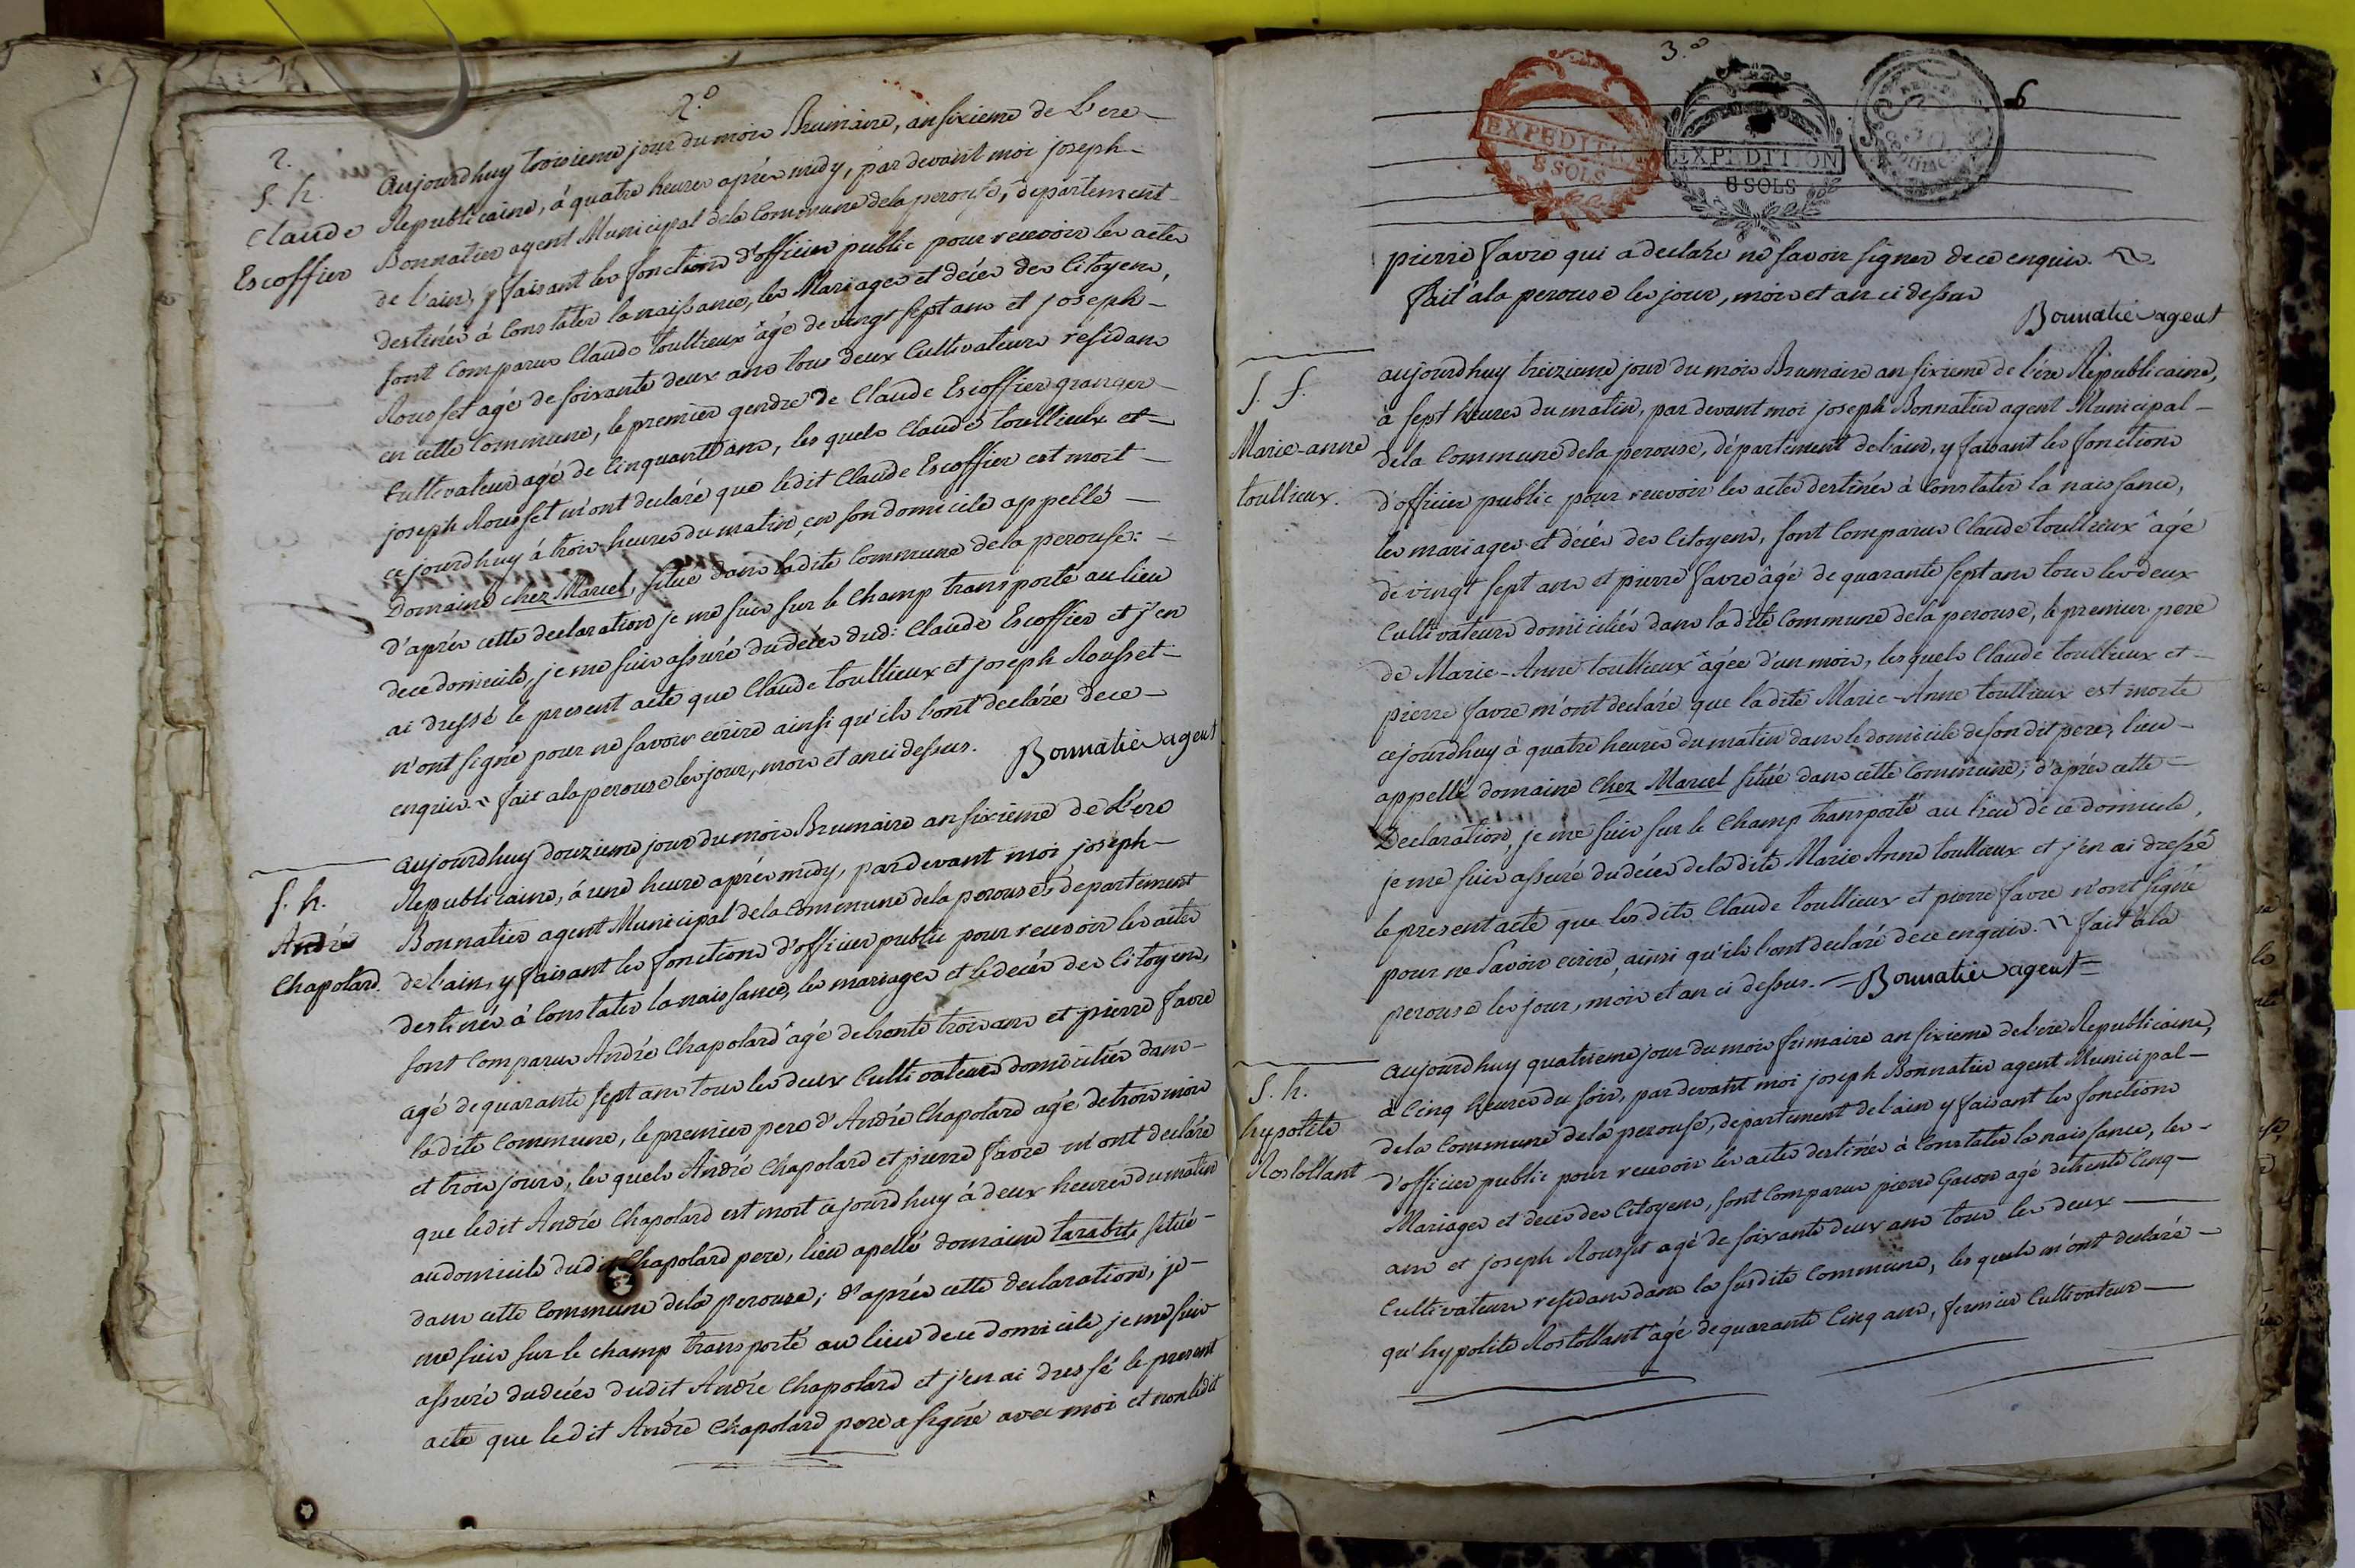 2.o
2.
S. h.
Claude
Escoffier
Aujourdhuy troisieme jour du mois Brumaire, an sixieme de L'ere
Republicaine, à quatre heures après midy, par devant moi joseph
Bonnatier agent Municipal dela Commune dela perouse, departement
de l'ain, y faisant les fonctions d'officier public pour recevoir les actes
destinés à Constater la naissance, les Mariages et décès des Citoyens,
sont Comparus Claude toullieux âgé de vingt sept ans et joseph
Rousset agé de soixante deux ans tous deux Cultivateurs résidans
en cette Commune, le premier gendre de Claude Escoffier granger
Cultivateur agé de Cinquante ans, les quels Claude toullieux et
joseph Rousset m'ont declaré que ledit Claude Escoffier est mort
ce jourdhuy à trois heures du matin, en son domicile appellé
Domaine chez Marcel, situé dans ladite Commune dela perouse:
d'après cette declaration je me suis sur le Champ transporté au lieu
de ce domicile, je me suis assuré du décès dud: Claude Escoffier et j'en
ai dressé le present acte que Claude toullieux et joseph Rousset
n'ont signé pour ne savoir ecrire ainsi qu'ils l'ont déclaré de ce
enquis. ~ fait ala perouse les jour, mois et an ci dessus. Bonnatier agent
S. h.
André
Chapolard.
Aujourdhuy douzieme jour du mois Brumaire an sixieme de L'ere
Republicaine, à une heure après midy, par devant moi joseph
Bonnatier agent Municipal dela Commune dela perouse, departement
de l'ain, y faisant les fonctions d'officier public pour recevoir les actes
destinés à Constater la naissance, les mariages et le décès des Citoyens,
sont Comparus André Chapolard âgé de trente trois ans et pierre favre
agé de quarante sept ans tous les deux Cultivateurs domiciliés dans
ladite Commune, le premier pere d'André Chapolard agé de trois mois
et trois jours, les quels André Chapolard et pierre favre m'ont declaré
que ledit André Chapolard est mort ce jourdhuy à deux heures du matin
au domicile dudit Chapolard pere, lieu apellé domaine tarabit, situé
dans cette Commune dela perouse; d'après cette declaration, je
me suis sur le champ transporté au lieu de ce domicile je me suis
assuré du décès dudit André Chapolard et j'en ai dressé le present
acte que ledit André Chapolard pere a signé avec moi et non ledit
3.o
6
EXPEDITION
8 SOLS
EXPEDITION
8 SOLS
pierre favre qui a declaré ne savoir signer de ce enquis. ~
fait à la perouse les jour, mois et an ci dessus
Bonnatier agent
S. f.
Marie-anne
toullieux.
aujourdhuy treizieme jour du mois Brumaire an sixieme de l'ère Républicaine,
à sept heures du matin, par devant moi joseph Bonnatier agent Municipal
dela Commune dela perouse, département de l'ain, y faisant les fonctions
d'officier public pour recevoir les actes destinés à Constater la naissance,
les mariages et décès des Citoyens, sont Comparus Claude toullieux âgé
de vingt sept ans et pierre favre âgé de quarante sept ans tous les deux
Cultivateurs domiciliés dans ladite Commune dela perouse, le premier pere
de Marie-Anne toullieux âgée d'un mois, les quels Claude toullieux et
pierre favre m'ont declaré que ladite Marie-Anne toullieux est morte
ce jourdhuy à quatre heures du matin dans le domicile de son dit pere, lieu
appellé domaine Chez Marcel situé dans cette Commune; d'après cette
Declaration, je me suis sur le Champ transporté au lieu de ce domicile,
je me suis assuré du décès de ladite Marie Anne toullieux et j'en ai dressé
le present acte que les dits Claude toullieux et pierre favre n'ont signé
pour ne savoir ecrire, ainsi qu'ils l'ont declaré de ce enquis. ~ fait à la
perouse les jour, mois et an ci dessus. = Bonnatier agent =
S. h.
hypolite
Rostollant
Aujourdhuy quatrieme jour du mois frimaire an sixieme de l'ère Republicaine,
à Cinq heures du soir, par devant moi joseph Bonnatier agent Municipal
dela Commune dela perouse, departement de l'ain y faisant les fonctions
d'officier public pour recevoir les actes destinés à Constater la naissance, les
Mariages et deces des Citoyens, sont Comparus pierre Gacon agé de trente Cinq
ans et joseph Rousset agé de soixante deux ans tous les deux
Cultivateurs residans dans la susdite Commune, les quels m'ont declaré
qu'hypolite Rostollant âgé de quarante Cinq ans, fermier Cultivateur